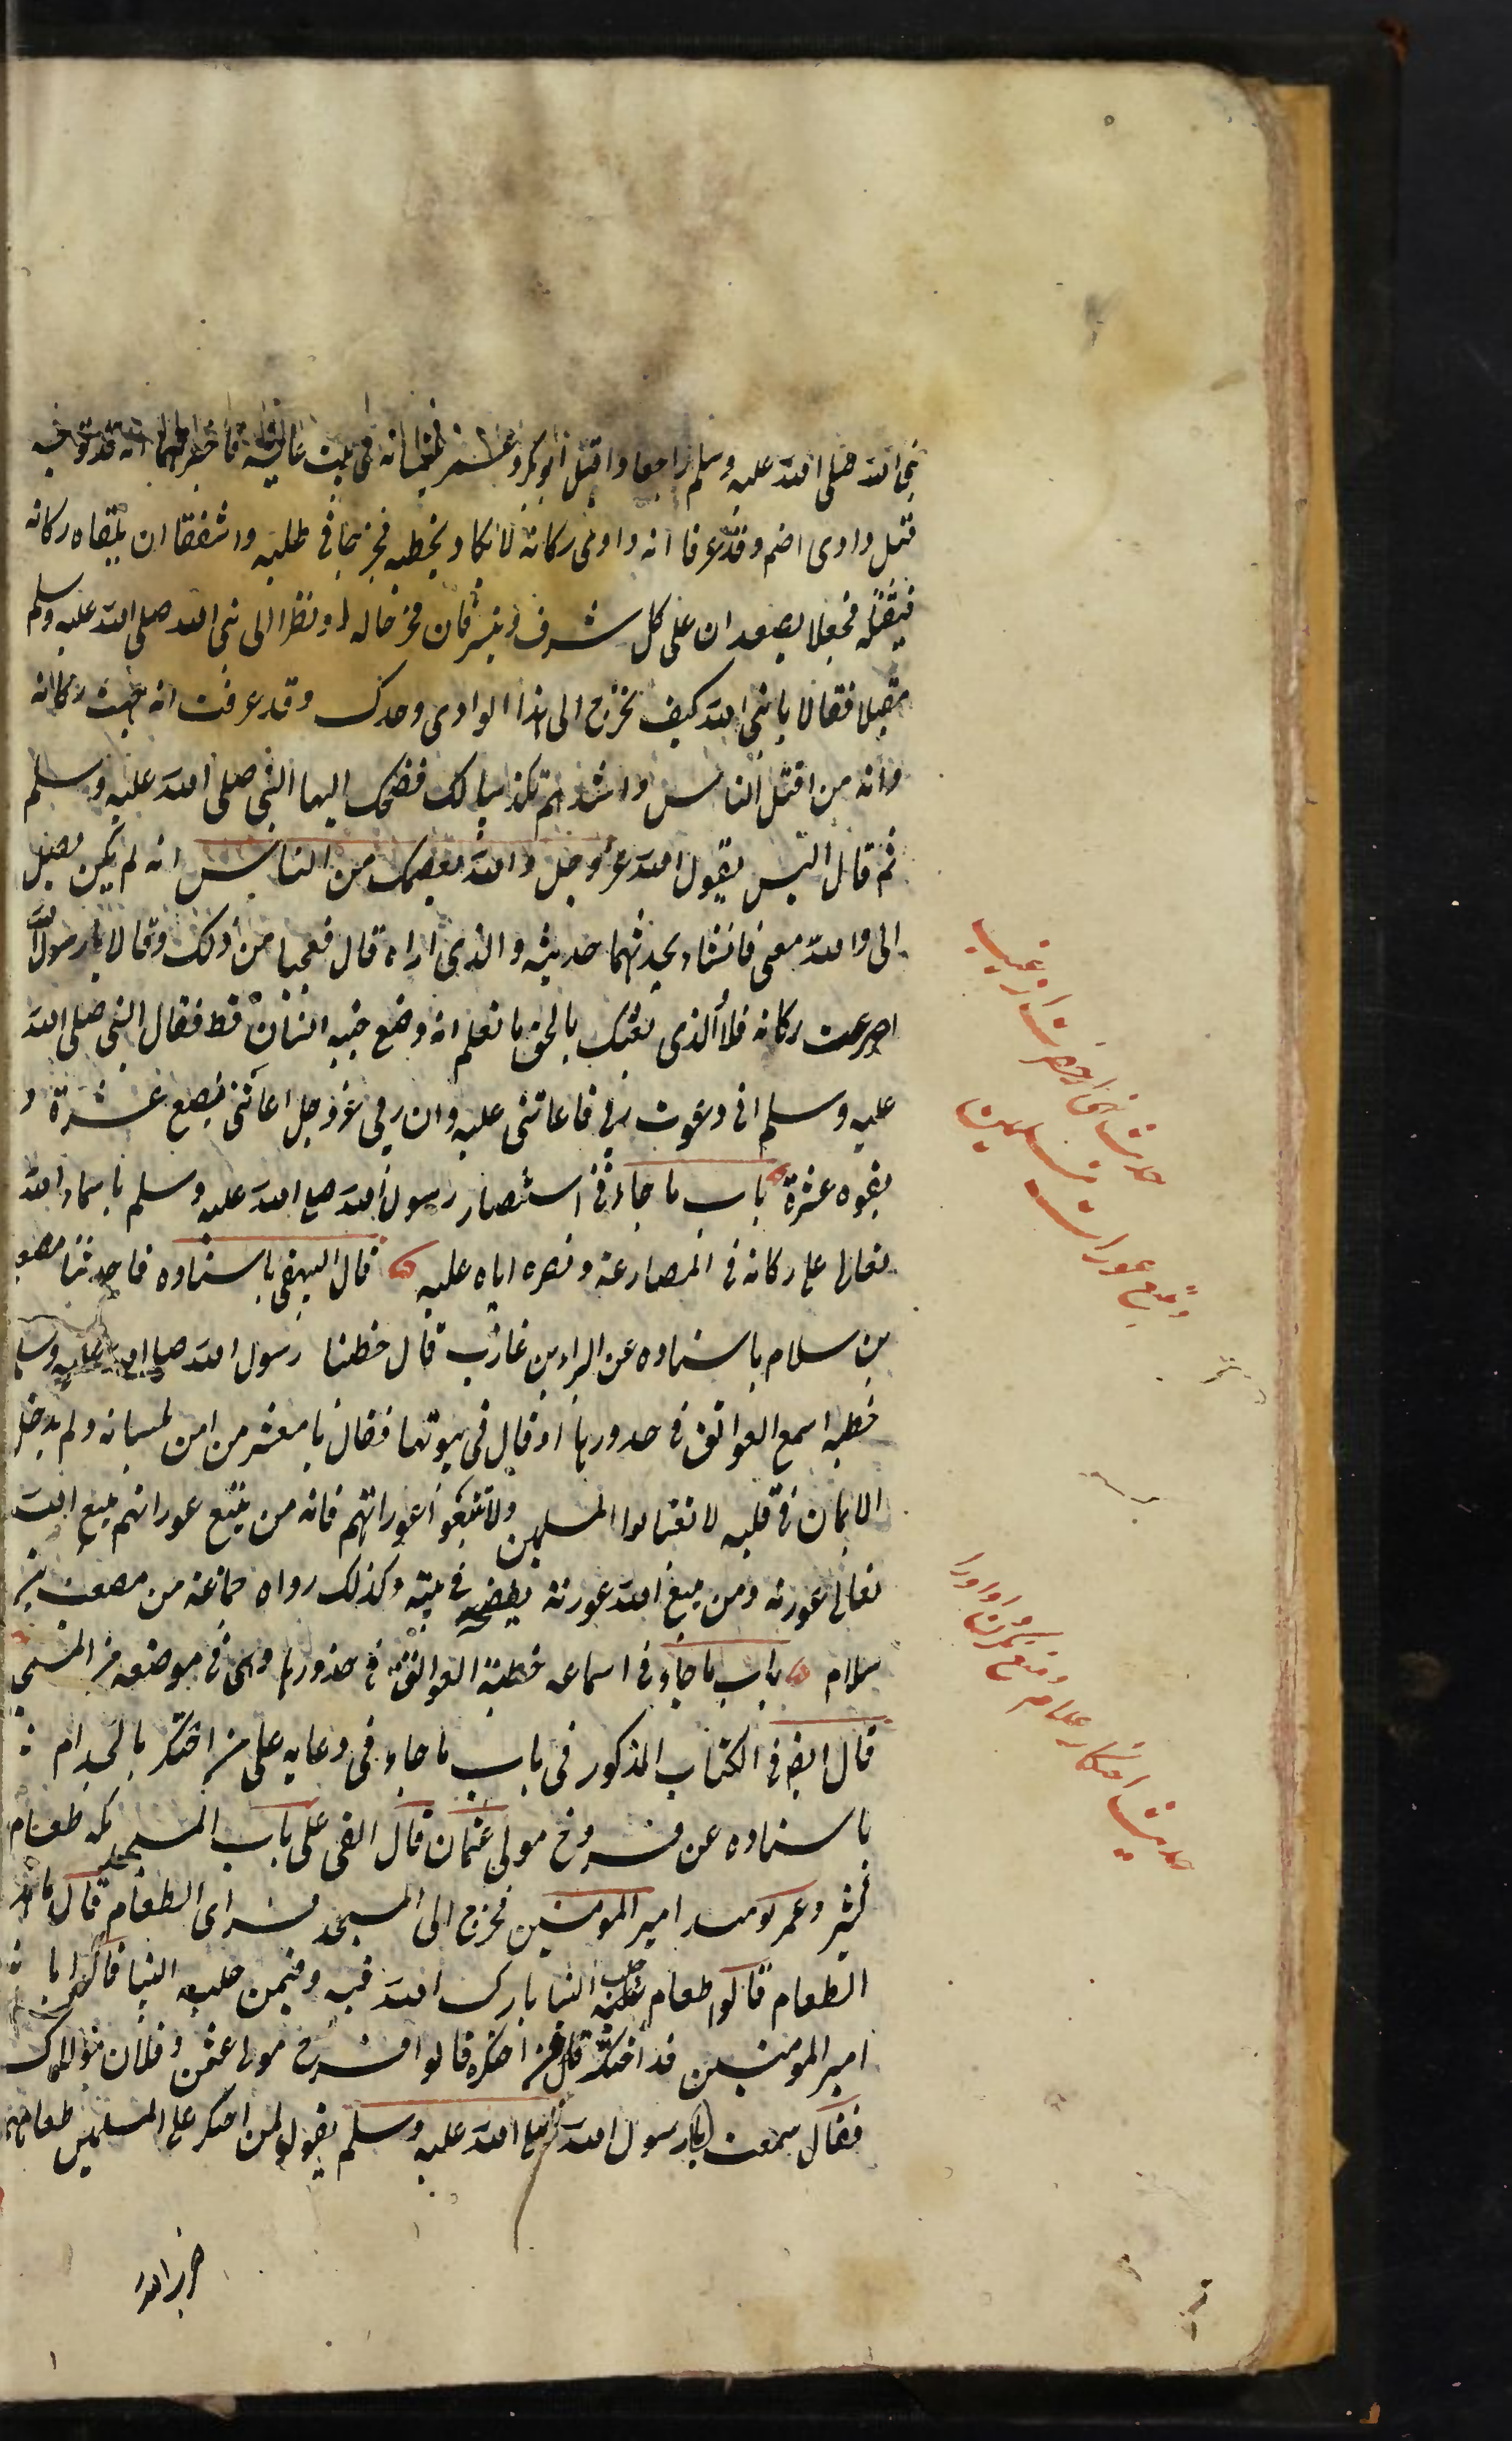 نبی الله صلی الله علیه وسلم راجعا واقبل ابو بکر وعمر یلتمسانه فی بیت عائشة فاخبرتهما انه قد توجه
قبل وادی اضم وقد عرفا انه وادی رکانة لا یکاد یخطیه فخرجا فی طلبه واشفقا ان یلقاه رکانه
فیقتله فجعلا یصعدان علی کل شرف ویشرفان مخرجا له اذ نظرا الی نبی الله صلی الله علیه وسلم
مقبلا فقالا یا نبی الله کیف تخرج الی هذا الوادی وحدک وقد عرفت انه جهت رکانه
وانه من اقتل الناس واشدهم تکذیبا لک فضحک الیهما النبی صلی الله علیه وسلم
ثم قال الیس یقول الله عز وجل والله یعصمک من الناس انه لم یکن یصل
الی والله معی فانشاء یحدثهما حدیثه والذی اراه قال فعجبا من ذلک وقالا یا رسول الله
اصرعت رکانه فلا والذی بعثک بالحق ما نعلم انه وضع جنبه انسان قط فقال النبی صلی الله
علیه وسلم انی دعوت ربی فاعاننی علیه وان ربی عز وجل اعاننی ببضع عشرة و
بقوه عشرة باب ما جاء فی استنصار رسول الله صلی الله علیه وسلم باسماء الله
تعالی علی رکانه فی المصارعة ونصره ایاه علیه قال البیهقی باسناده فا حدثنا مصعب
بن سلام باسناده عن البراء بن عازب قال خطبنا رسول الله صلی الله علیه وسلم
خطبه اسمع العواتق فی خدورها او قال فی بیوتها فقال یا معشر من امن بلسانه ولم یدخل
الایمان فی قلبه لا تغتابوا المسلمین ولا تتبعوا عوراتهم فانه من یتبع عوراتهم یتبع الله
تعالی عورته ومن یتبع الله عورته یفضحه فی بیته وکذلک رواه جماعة من مصعب بن
سلام باب ما جاء فی اسماعه خطبته العواتق فی خدورها وهی فی موضعه من المسجد
قال ایضا فی الکتاب المذکور فی باب ما جاء فی دعایه علی من احتکر بالجذام
باسناده عن فروخ مولی عثمان قال القی علی باب المسجد مکه طعام
کثیر وعمر یومئذ امیر المومنین فخرج الی المسجد فرای الطعام قال ما هذا
الطعام قالوا طعام جلب الینا بارک الله فیه وفیمن جلبه الینا فقالوا یا
امیر المومنین قد احتکر قال من احتکره قالوا فروخ مولی عثمن وفلان مولاک
فقال سمعت رسول الله صلی الله علیه وسلم یقول من احتکر علی المسلمین طعامهم
ضربه الله
حدیث نهی حضرت از غیبت
وتتبع عورات مسلمین
حدیث احتکار طعام ومنع کردن